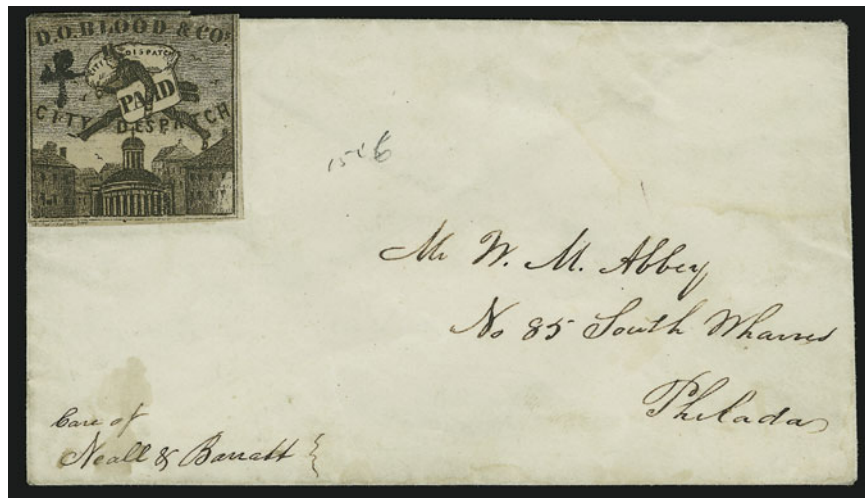 D.O. BLOOD & Cos.
CITY DISPATCH
PAID
CITY DESPATCH
Mr W. M. Abbey
No 85 South Wharves
Philada
Care of
Neall & Barratt